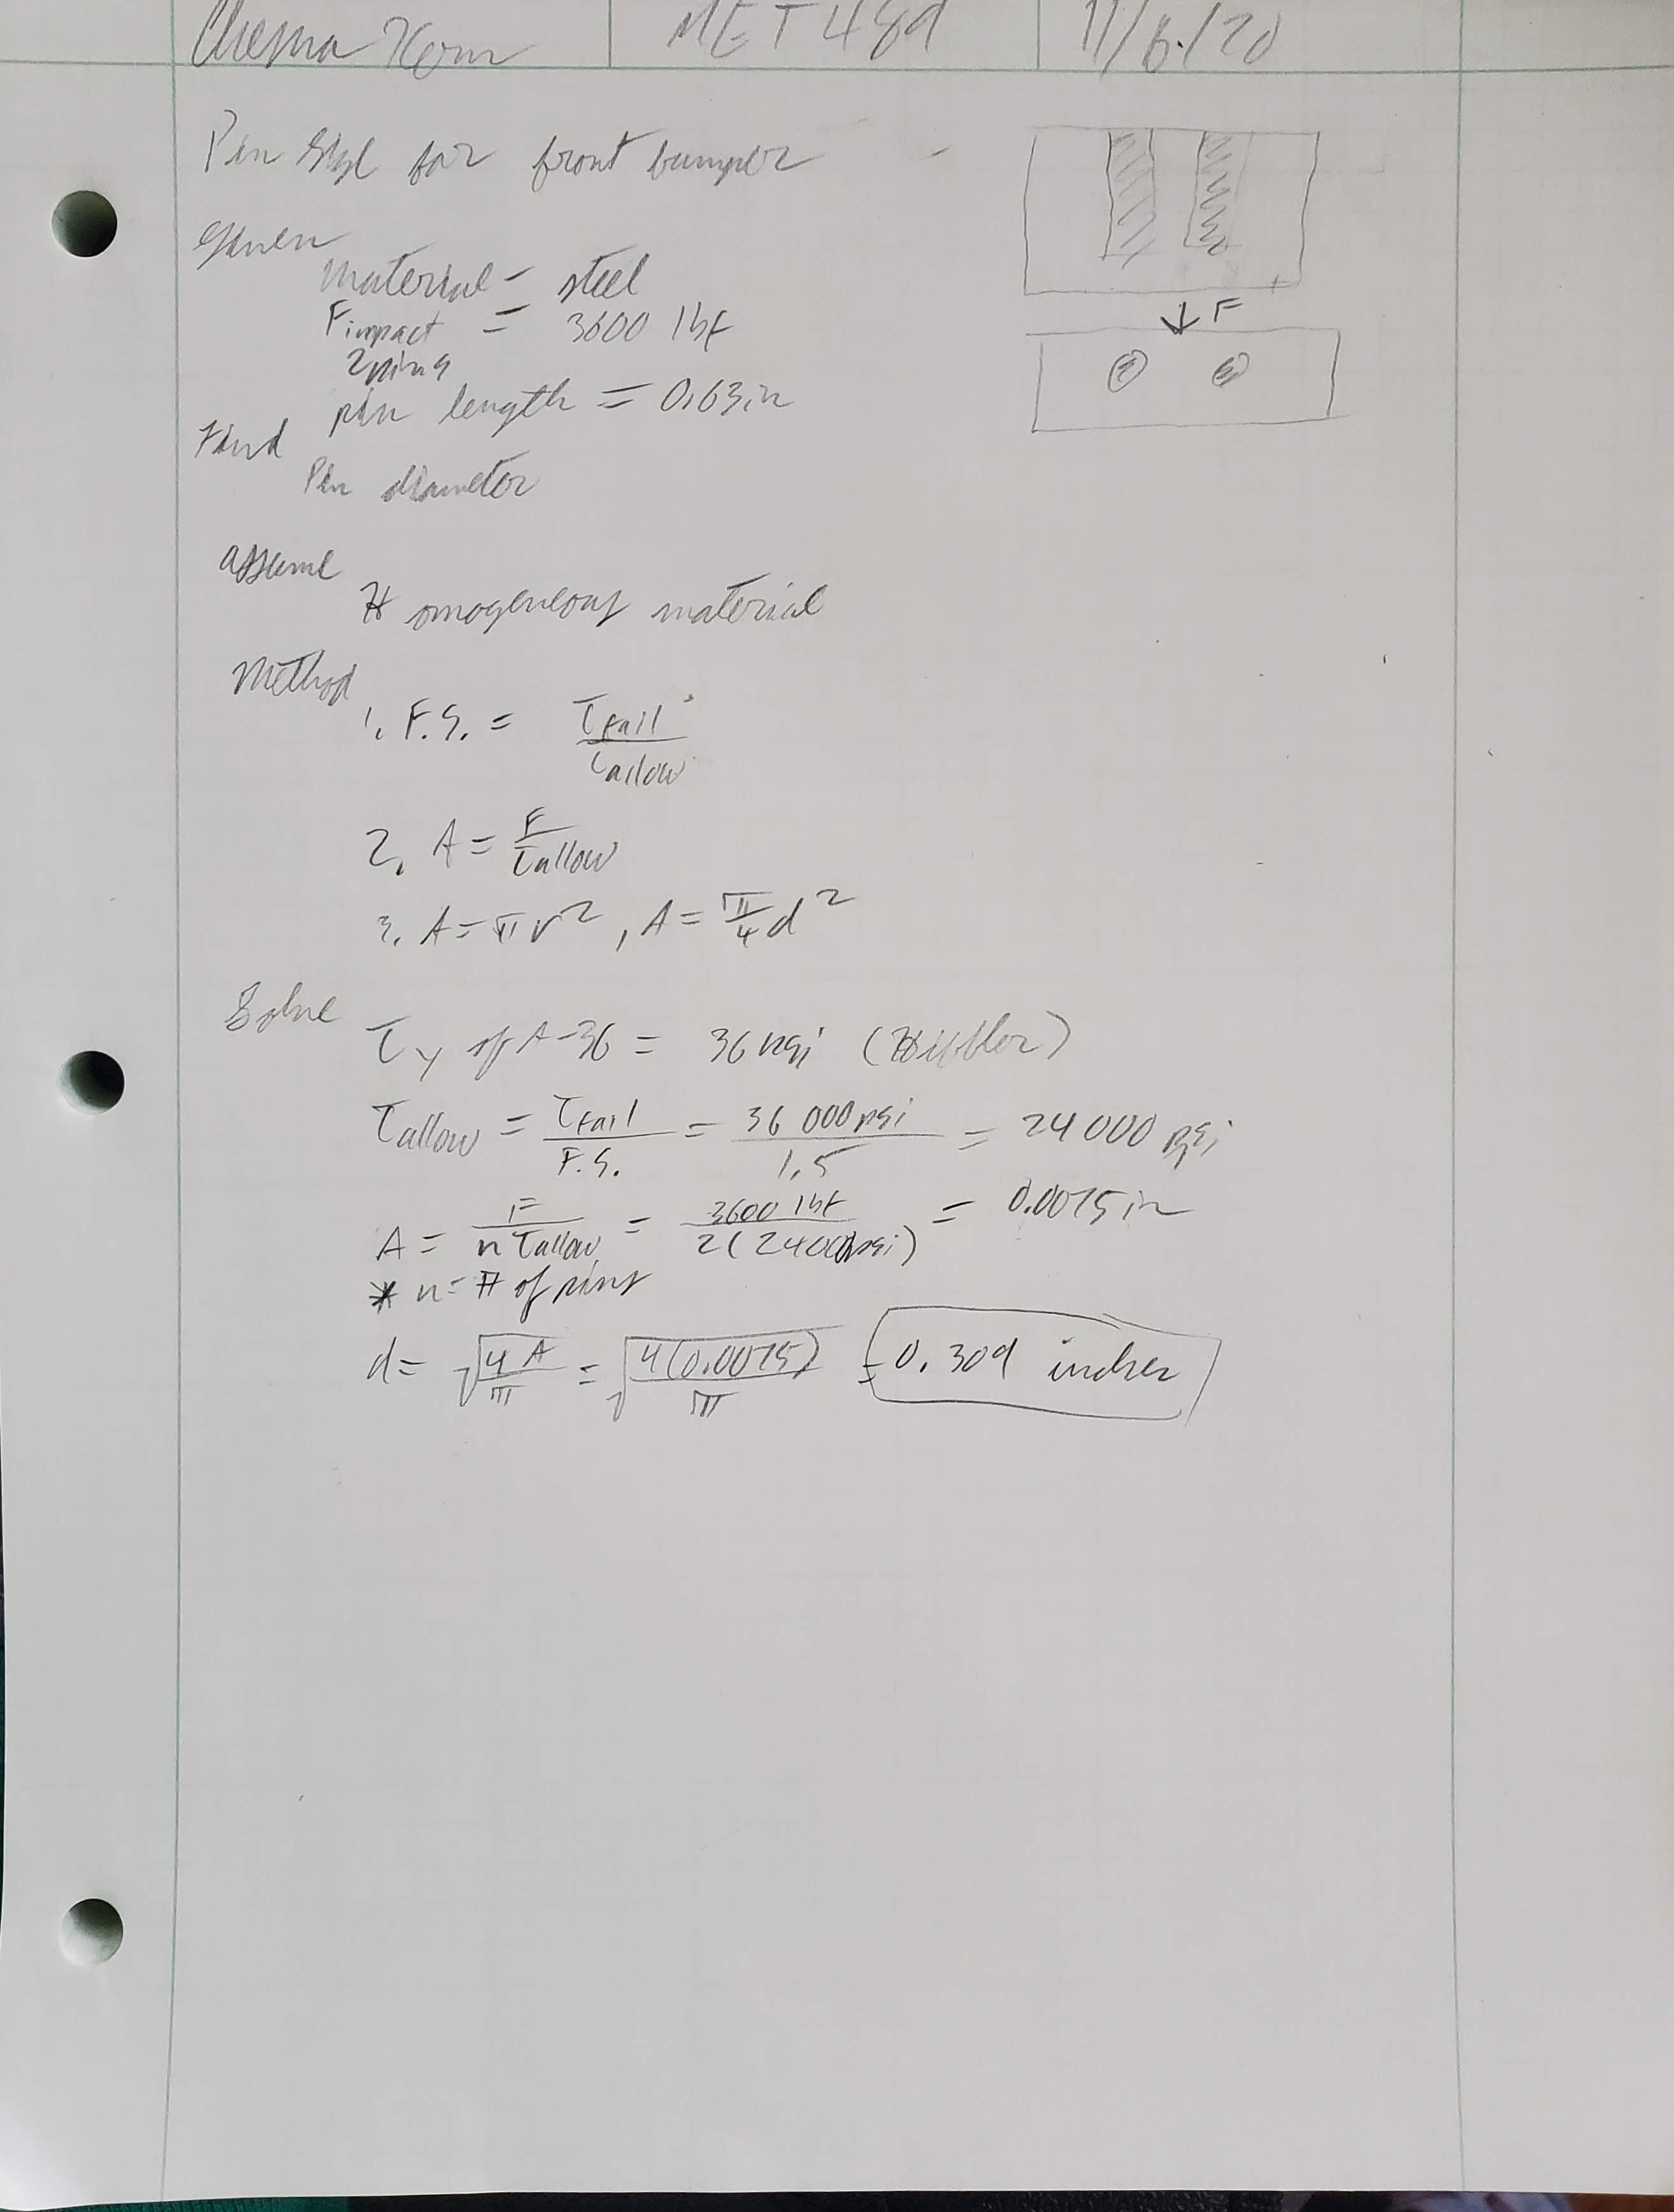 MET 489
11/6/20
Pin size for front bumper
F
Given
material - steel
Fimpact = 3600 lbf
2 pins
pin length = 0.63in
Find
Pin diameter
Assume
Homogeneous material
Method
1. F.S. = τfail / τallow
2. A = F / τallow
3. A = πr², A = π/4 d²
Solve
τy of A-36 = 36 ksi (Hibbler)
τallow = τfail / F.S. = 36 000psi / 1.5 = 24 000 psi
A = F / n τallow = 3600 lbf / 2(24000psi) = 0.0075in
* n = # of pins
d = √4 A / π = √4(0.0075) / π = 0.309 inches